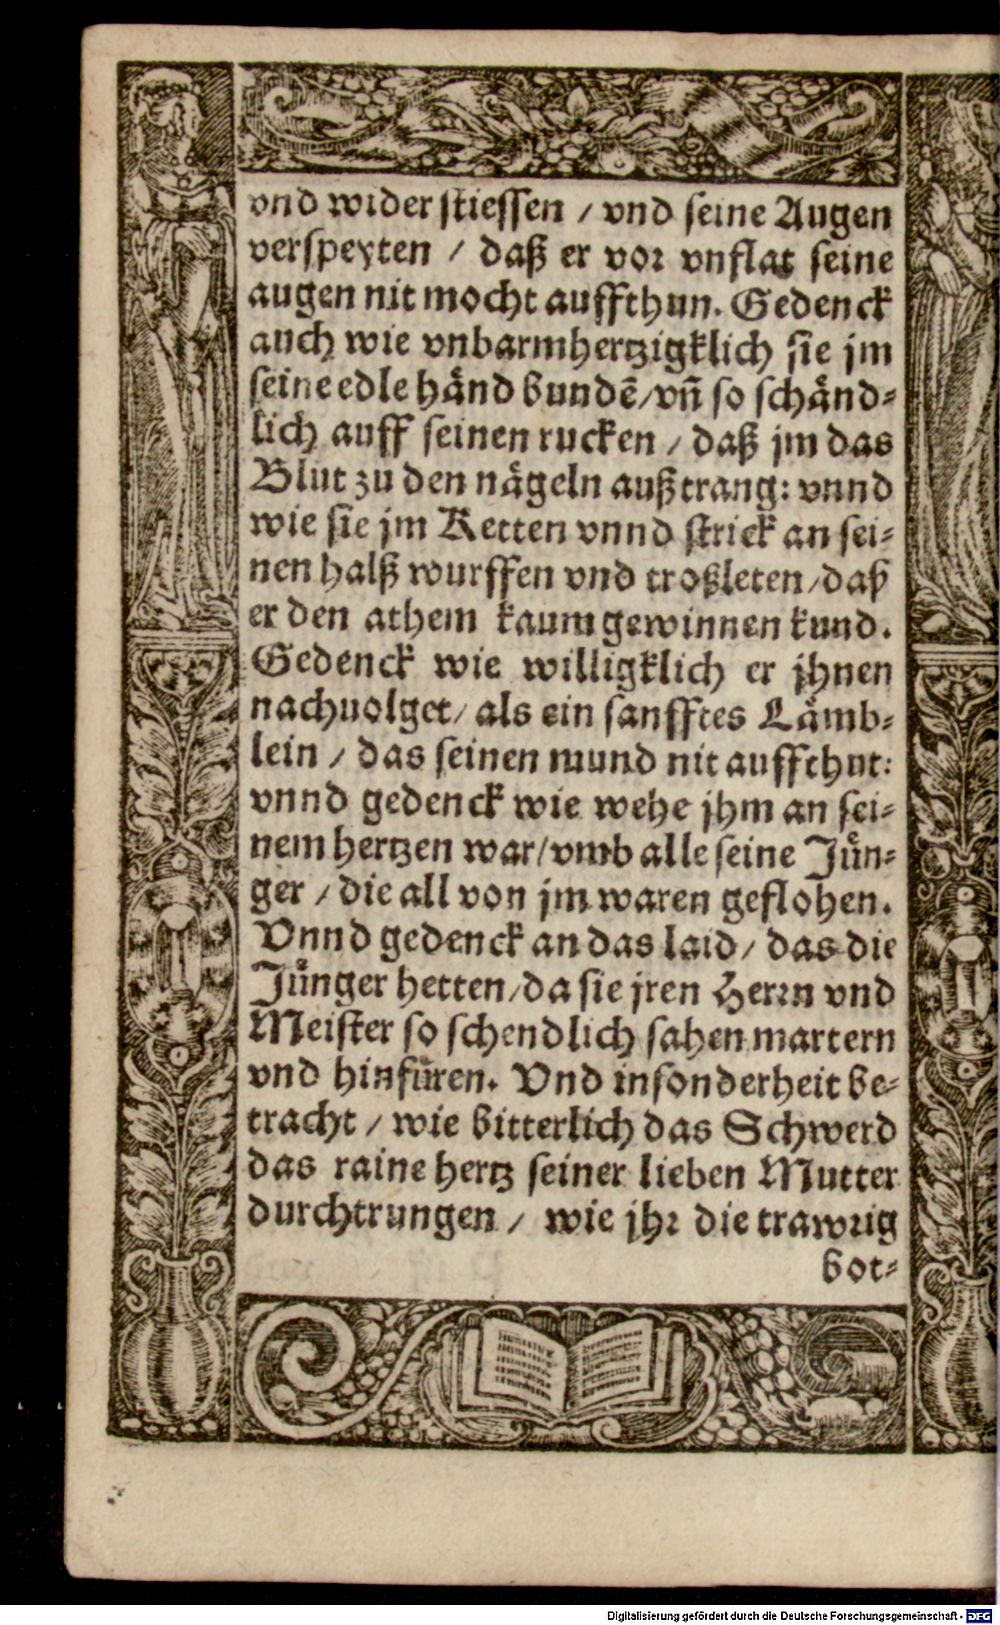 vnd wider stiessen / vnd seine Augen
verspeyten / daß er vor vnflat seine
augen nit mocht auffthun. Gedenck
auch wie vnbarmhertzigklich sie jm
seine edle händ bundẽ/vñ so schänd-
lich auff seinen rucken / daß jm das
Blut zu den nägeln außtrang: vnnd
wie sie jm Ketten vnnd strick an sei-
nen halß wurffen vnd troßleten/daß
er den athem kaum gewinnen kund.
Gedenck wie willigklich er jhnen
nachuolget/ als ein sanfftes Lämb-
lein / das seinen mund nit auffthut:
vnnd gedenck wie wehe jhm an sei-
nem hertzen war/vmb alle seine Jün-
ger / die all von jm waren geflohen.
Vnnd gedenck an das laid/ das die
Jünger hetten/da sie jren Herrn vnd
Meister so schendlich sahen martern
vnd hinfüren. Vnd insonderheit be-
tracht / wie bitterlich das Schwerd
das raine hertz seiner lieben Mutter
durchtrungen / wie jhr die trawrig
bot-
Digitalisierung gefördert durch die Deutsche Forschungsgemeinschaft - DFG